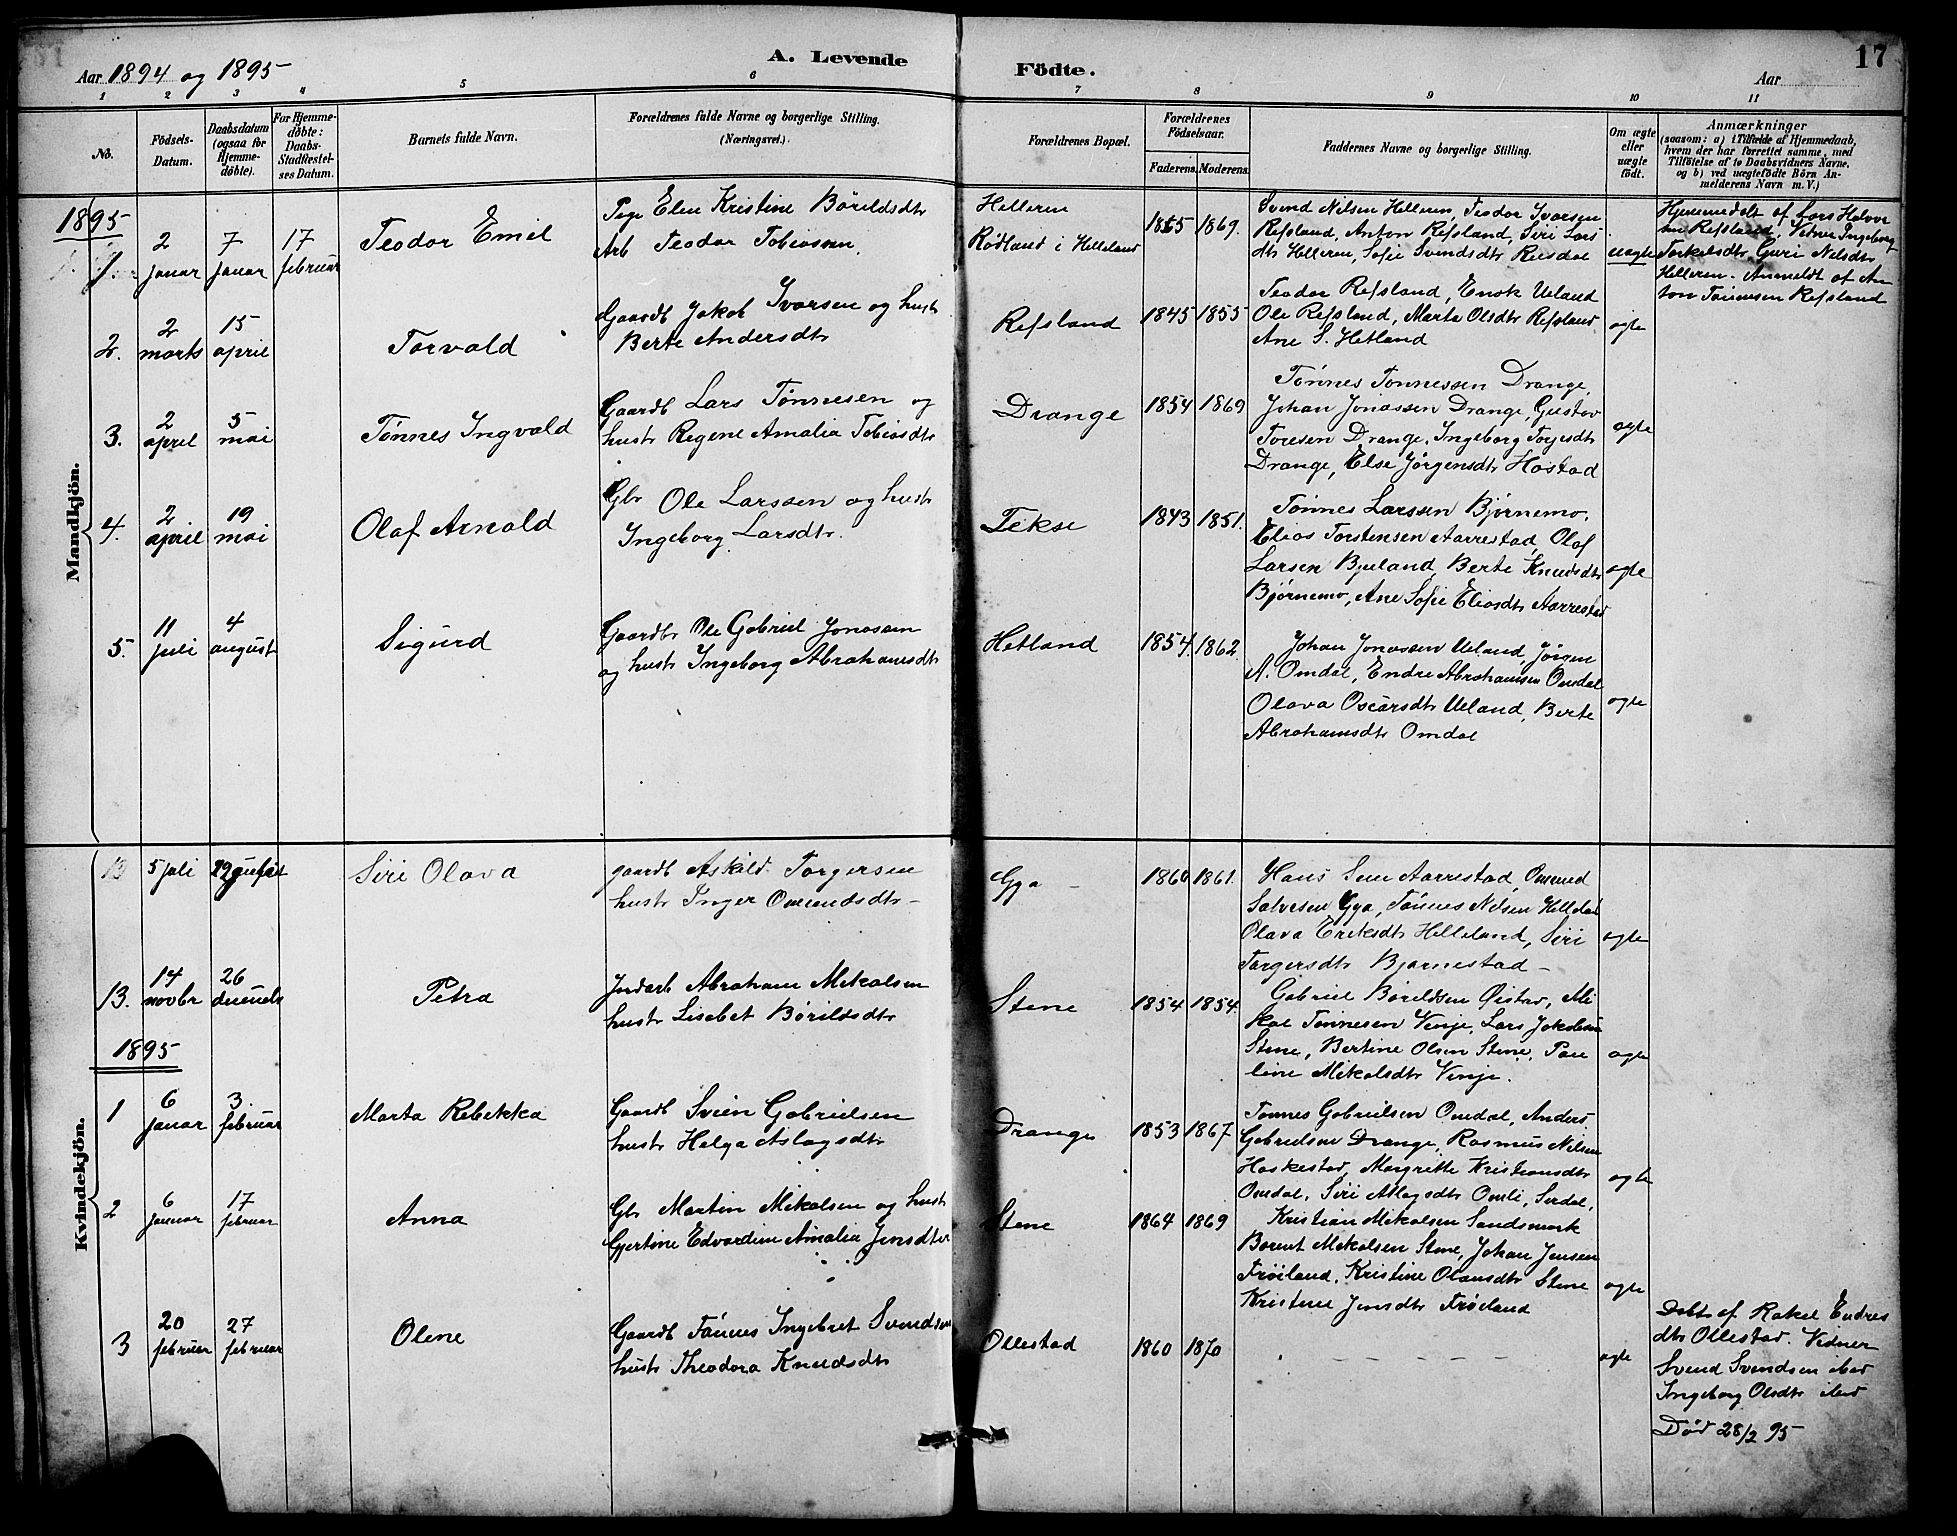 17
Aar 1894 og 1895
A. Levende
Födte.
Aar
1 2 3 4 5 6 7 8 9 10 11
No.
Födsels-
Datum.
Daabsdatum
(ogsaa for
Hjemme-
døbte).
For Hjemme-
døbte:
Daabs-
Stadfæstel-
ses Datum.
Barnets fulde Navn.
Forældrenes fulde Navne og borgerlige Stilling.
(Næringsvei.)
Forældrenes Bopæl.
Forældrenes
Fødselsaar.
Faderens.
Moderens.
Faddernes Navne og borgerlige Stilling.
Om ægte
eller
uægte
født.
Anmærkninger
(saasom: a) i Tilfælde af Hjemmedaab,
hvem der har forrettet samme, med
Tilföielse af to Daabsvidners Navne,
og b) ved uægtefödte Börn An-
melderens Navn m. V.)
Mandkjön.
1895
1.
2 januar
7 januar
17 februar
Teodor Emil
Pige Elen Kristine Börildsdtr
Arb Teodor Tobiassen
Helleren
Rødland i Helleland
1855 1869.
Svend Nilsen Helleren, Teodor Ivorsen
Refsland, Anton Refsland, Siri Lars
dtr Helleren, Sofie Svendsdtr Reesdal
uægte
Hjemmedøbt af Lars Halvor
sen Refsland, Vidner Ingeborg
Torkelsdtr Guri Nilsdtr
Helleren. Anmeldt af An
ton Tønnesen Refsland
2.
2 marts
15 april
Torvald
Gaardb Jakob Ivorsen og hustr
Berte Andersdtr
Refsland
1845 1855
Teodor Refsland, Enok Ueland
Ole Refsland, Marta Olsdtr Refsland
Ane S. Hetland
ægte
3.
2 april
5 mai
Tønnes Ingvald
Gaardb Lars Tønnesen og
hustr Regine Amalia Tobiasdtr
Drange
1854 1869
Tønnes Tonnessen Drange,
Johan Jonassen Drange, Gustav
Toresen Drange, Ingeborg Torjesdtr
Drange, Else Jørgensdtr Hostad
ægte
4.
2 april
19 mai
Olaf Arnold
Gbr Ole Larssen og hustr
Ingeborg Larsdtr.
Tekse
1843 1851.
Tønnes Larssen Bjørnemo,
Elias Torstensen Aarrestad, Olaf
Larsen Bjueland, Berte Knudsdtr
Bjørnemo, Ane Sofie Eliasdtr Aarrestad
ægte
5.
11 juli
4 august
Sigurd
Gaardbr Ole Gabriel Jonassen
og hustr Ingeborg Abrahamsdtr
Hetland
1854. 1862.
Johan Jonassen Ueland, Jørgen
A. Omdal, Endre Abrahamsen Omdal
Olava Oscarsdtr Ueland, Berte
Abrahamsdtr Omdal
ægte
Kvindekjön.
5 juli
Siri Olava
gaardb Askild Torgersen
hustr Inger Omundsdtr -
Gya -
1860 1861.
Hans Sem Aarrestad, Omund
Salvesen Gya, Tønnes Nilsen
Olava Eriksdtr Helleland, Siri
Torgersdtr Bjornestad -
ægte
13.
14 novbr
26
Petra
Indarb Abraham Mikalsen
hustr Lisebet Börildsdtr
Stene
1854 1854.
Gabriel Börildsen Øistad, Mi
kal Tønnesen Vinje, Lars Jakobsen
Stene, Bertine Olsen Stene, Pau
line Mikalsdtr Vinje.
ægte
1895
1
6 januar
3. februar
Marta Rebekka
Gaardb Svein Gabrielsen
hustr Helga Aslagsdtr
Drange
1853 1867
Tønnes Gabrielsen Omdal, Anders
Gabrielsen Drange, Rasmus Nilsen
Haskestad, Margrette Kristiansdtr
Omdal, Siri Aslagsdtr Omli, Sirdal,
ægte
2
6 januar
17 februar
Anna
Gbr Martin Mikalsen og hustr
Gjertine Edvardine Amalia Jensdter
Stene
1864 1869
Kristian Mikalsen Sandsmark
Berent Mikalsen Stene, Johan Jensen
Frøiland, Kristine Olausdtr Stene
Kristine Jensdtr Frøiland
ægte
3
20 februar
27 februar
Olene
Gaardb Tønnes Ingebret Svendsen
hustr Theodora Knudsdtr
Ollestad
1860 1870
- - - - -
ægte
Døbt af Rakel Endres
dtr Ollestad. Vidner
Svend Svendsen ibid
Ingeborg Olsdtr ibid
Død 28/2 95